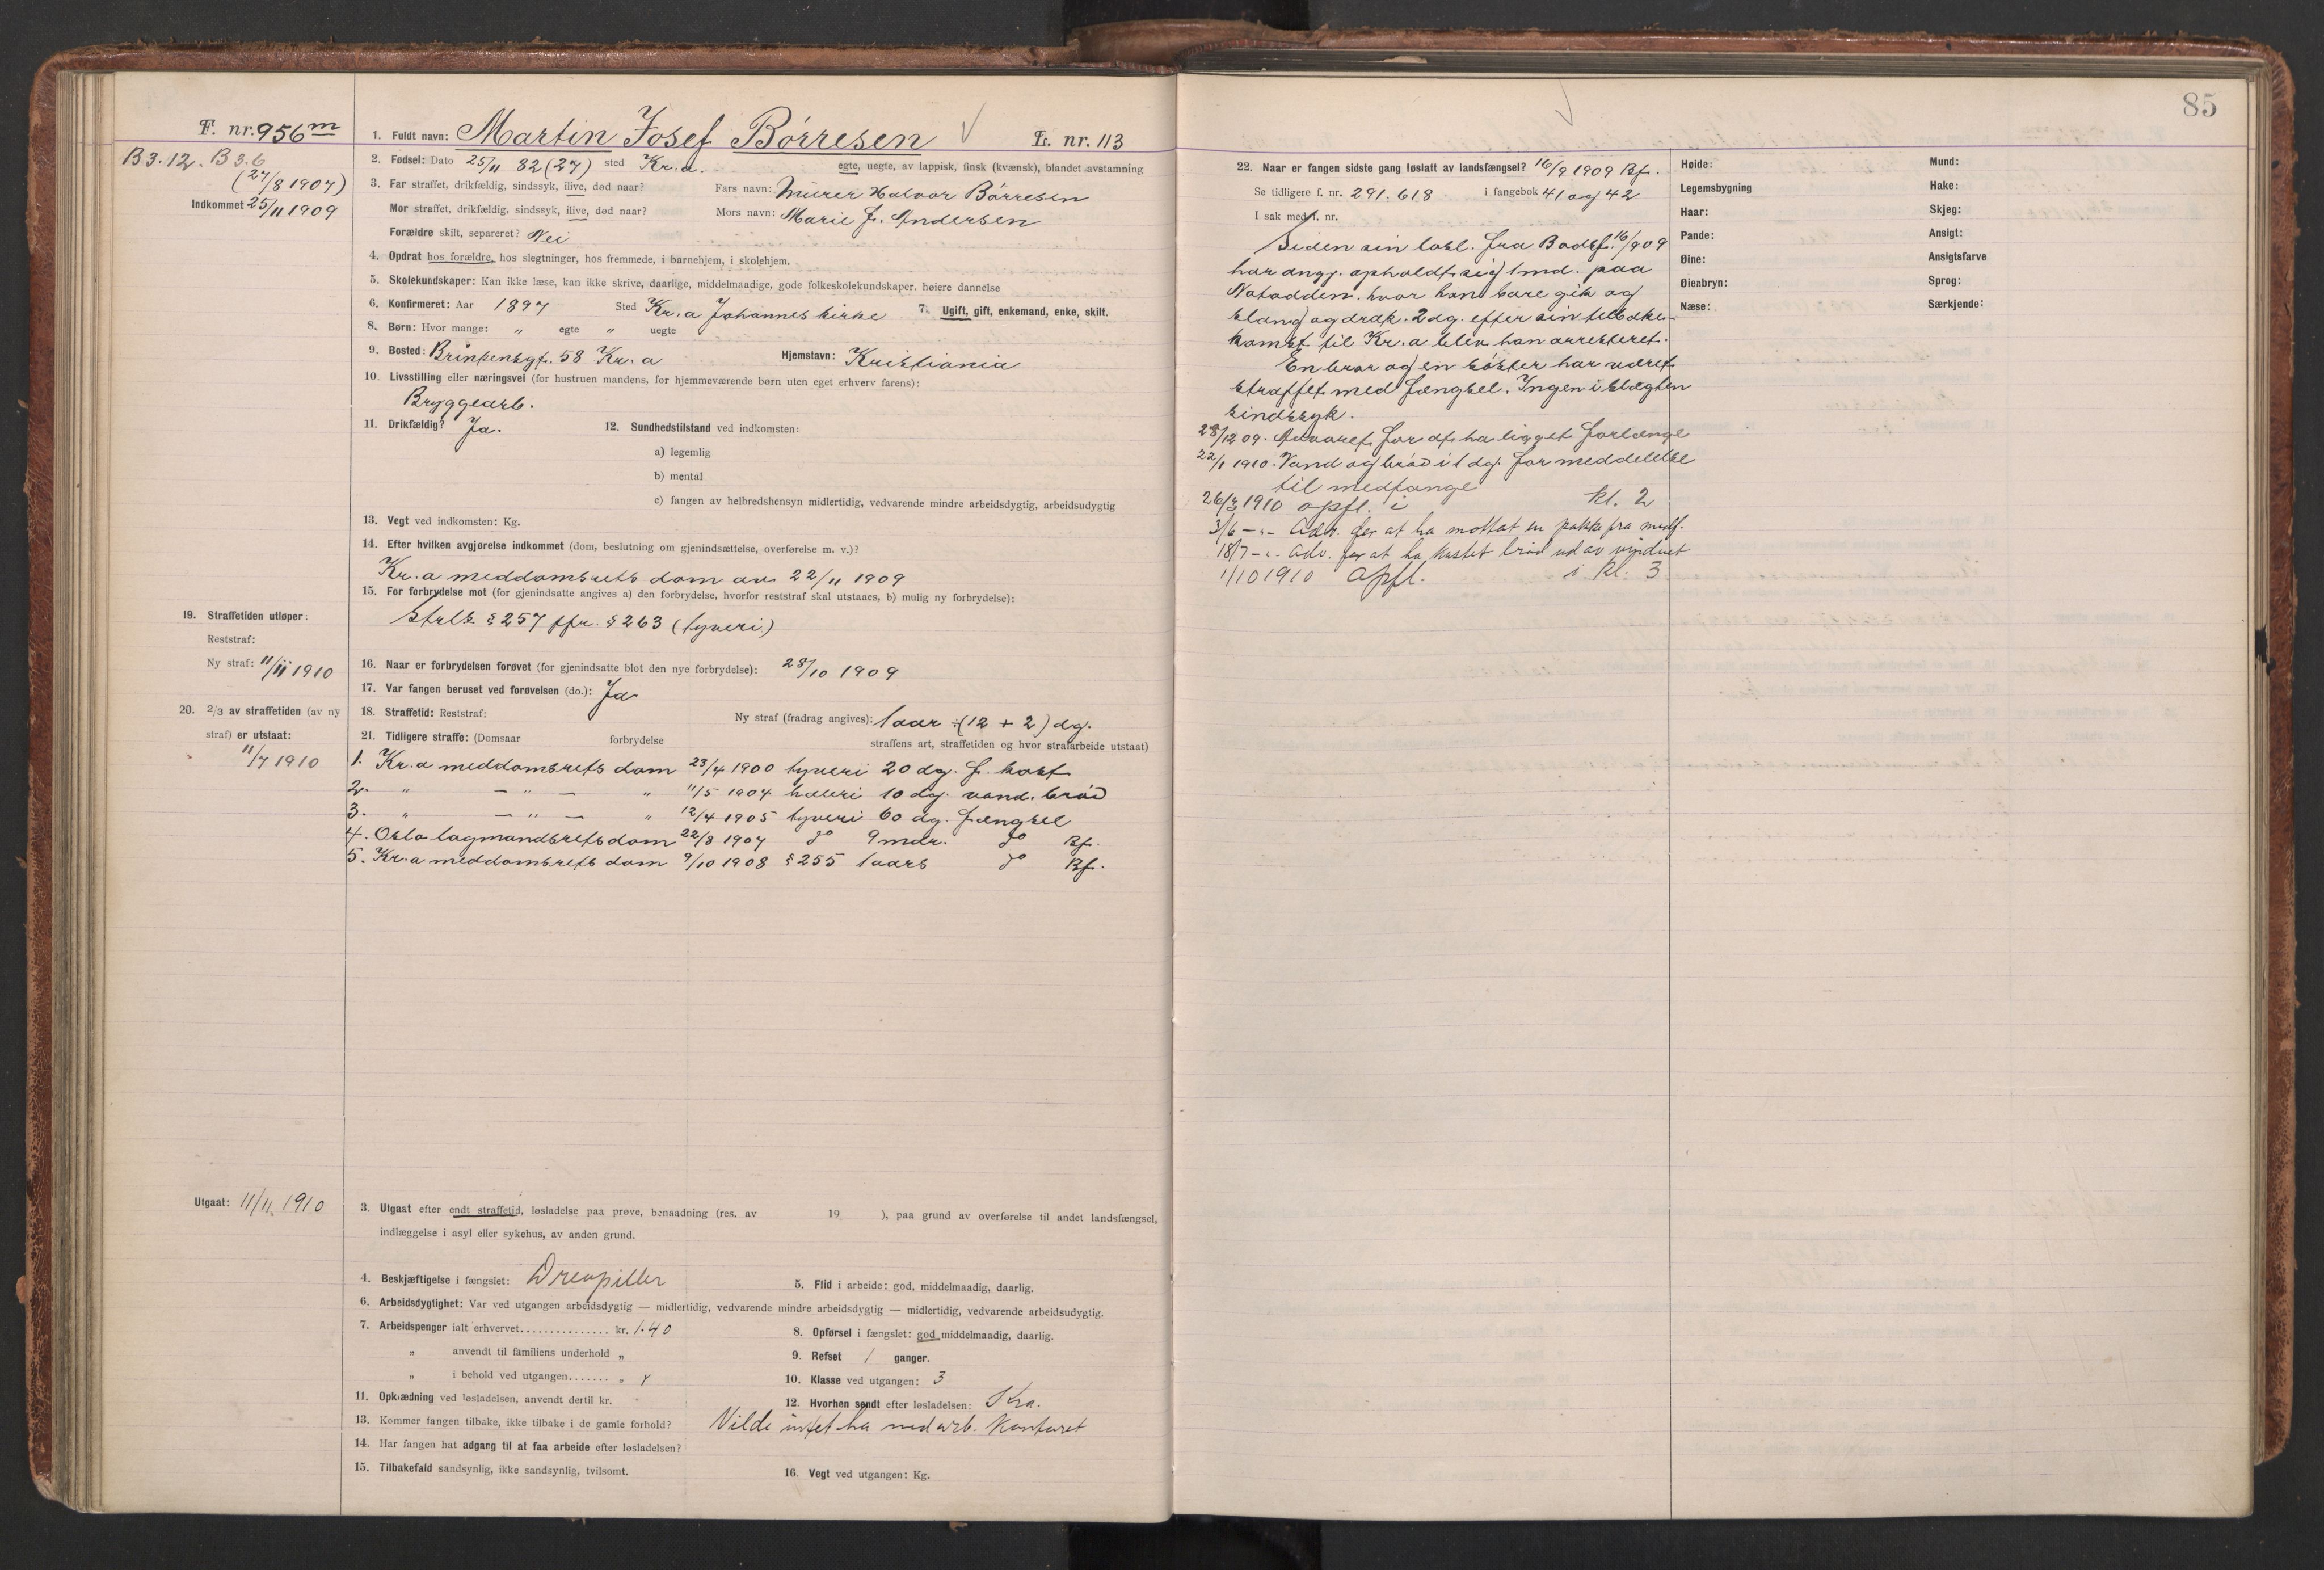 F. nr. 956 m
B 3.12. B 3.6
(27/8 1907)
Indkommet 25/11 1909
1. Fuldt navn: Martin Josef Börresen L. nr. 113
2. Fødsel: Dato 25/11 82 (27) sted Kr.a. egte, uegte, av lappisk, finsk (kvænsk), blandet avstamning
3. Far straffet, drikfældig, sindssyk, ilive, død naar? Fars navn: Murer Halvor Börresen
Mor straffet, drikfældig, sindssyk, ilive, død naar? Mors navn: Marie f. Andersen
Forældre skilt, separeret? Nei
4. Opdrat hos forældre, hos slegtninger, hos fremmede, i barnehjem, i skolehjem.
5. Skolekundskaper: Kan ikke læse, kan ikke skrive, daarlige, middelmaadige, gode folkeskolekundskaper. høiere dannelse
6. Konfirmeret: Aar 1897 Sted Kr.a Johannes kirke 7. Ugift, gift, enkemand, enke, skilt.
8. Børn: Hvor mange: „ egte „ uegte
9. Bosted: Brinkensgt. 58 Kr.a Hjemstavn: Kristiania
10. Livsstilling eller næringsvei (for hustruen mandens, for hjemmeværende børn uten eget erhverv farens):
Bryggearb.
11. Drikfældig? Ja. 12. Sundhedstilstand ved indkomsten:
a) legemlig
b) mental
c) fangen av helbredshensyn midlertidig, vedvarende mindre arbeidsdygtig, arbeidsudygtig
13. Vegt ved indkomsten: Kg.
14. Efter hvilken avgjørelse indkommet (dom, beslutning om gjenindsættelse, overførelse m. v.)?
Kr.a meddomsrets dom av 22/11 1909
15. For førbrydelse mot (for gjenindsatte angives a) den forbrydelse, hvorfor reststraf skal utstaaes, b) mulig ny forbrydelse):
Strl. § 257 jfr. § 263 (tyveri)
19. Straffetiden utløper:
Reststraf:
Ny straf: 11/11 1910
16. Naar er forbrydelsen forøvet (for gjenindsatte blot den nye forbrydelse): 28/10 1909
17. Var fangen beruset ved forøvelsen (do.): Ja
20. 2/3 av straffetiden (av ny
straf) er utstaat:
11/7 1910
18. Straffetid: Reststraf: Ny straf (fradrag angives): 1 aar ÷ (12 + 2) dg.
21. Tidligere straffe: (Domsaar forbrydelse straffens art, straffetiden og hvor strafarbeide utstaat)
1. Kr.a meddomsrets dom 23/4 1900 tyveri 20 dg. f. kost
2. „ — „ — „ 11/5 1904 hæleri 10 dg. vand. bröd
3. „ — „ — „ 12/4 1905 tyveri 60 dg. fængsel
4. Oslo lagmandsrets dom 22/8 1907 do 9 mdr. do Bf.
5. Kr.a meddomsrets dom 9/10 1908 § 255 1 aars do Bf.
Utgaat: 11/11. 1910
3. Utgaat efter endt straffetid, løsladelse paa prøve, benaadning (res. av 19 ), paa grund av overførelse til andet landsfængsel,
indlæggelse i asyl eller sykehus, av anden grund.
4. Beskjæftigelse i fængslet: Drevpiller 5. Flid i arbeide: god, middelmaadig, daarlig.
6. Arbeidsdygtighet: Var ved utgangen arbeidsdygtig — midlertidig, vedvarende mindre arbeidsdygtig — midlertidig, vedvarende arbeidsudygtig.
7. Arbeidspenger ialt erhvervet............... kr. 1.40 8. Opførsel i fængslet: god middelmaadig, daarlig.
„ anvendt til familiens underhold „ 9. Refset 1 ganger.
„ i behold ved utgangen....... „ 10. Klasse ved utgangen: 3
11. Opklædning ved løsladelsen, anvendt dertil kr. 12. Hvorhen sendt efter løsladelsen: Kra.
13. Kommer fangen tilbake, ikke tilbake i de gamle forhold? Vilde intet ha med arb. kontoret
14. Har fangen hat adgang til at faa arbeide efter løsladelsen?
15. Tilbakefald sandsynlig, ikke sandsynlig, tvilsomt. 16. Vegt ved utgangen: Kg.
85
22. Naar er fangen sidste gang løslatt av landsfængsel? 16/9 1909 Bf.
Se tidligere f. nr. 291. 618 i fangebok 41 og 42
I sak med f. nr.
Siden sin løsl. fra Bodsf. 16/9 09
har angj. opholdt sig 1 md. paa
Notodden. hvor han bare gik og
slang og drak. 2 dg. efter sin tilbake-
komst til Kr.a blev han arresteret.
En bror og en söster har været
straffet med fængsel. Ingen i slegten
sindssyk.
28/12 09. Advaret for at ha ligget forlænge
22/1 1910. Vand og bröd i 1 dg. for meddelelse
til medfange
26/3 1910 opfl. i kl. 2
3/6 -„- Adv. for at ha mottat en pakke fra medf.
18/7 -„- Adv. for at ha kastet bröd ud av vinduet
1/10 1910 Opfl. i kl. 3
Høide: Mund:
Legemsbygning Hake:
Haar: Skjeg:
Pande: Ansigt:
Øine: Ansigtsfarve
Øienbryn: Sprog:
Næse: Særkjende: